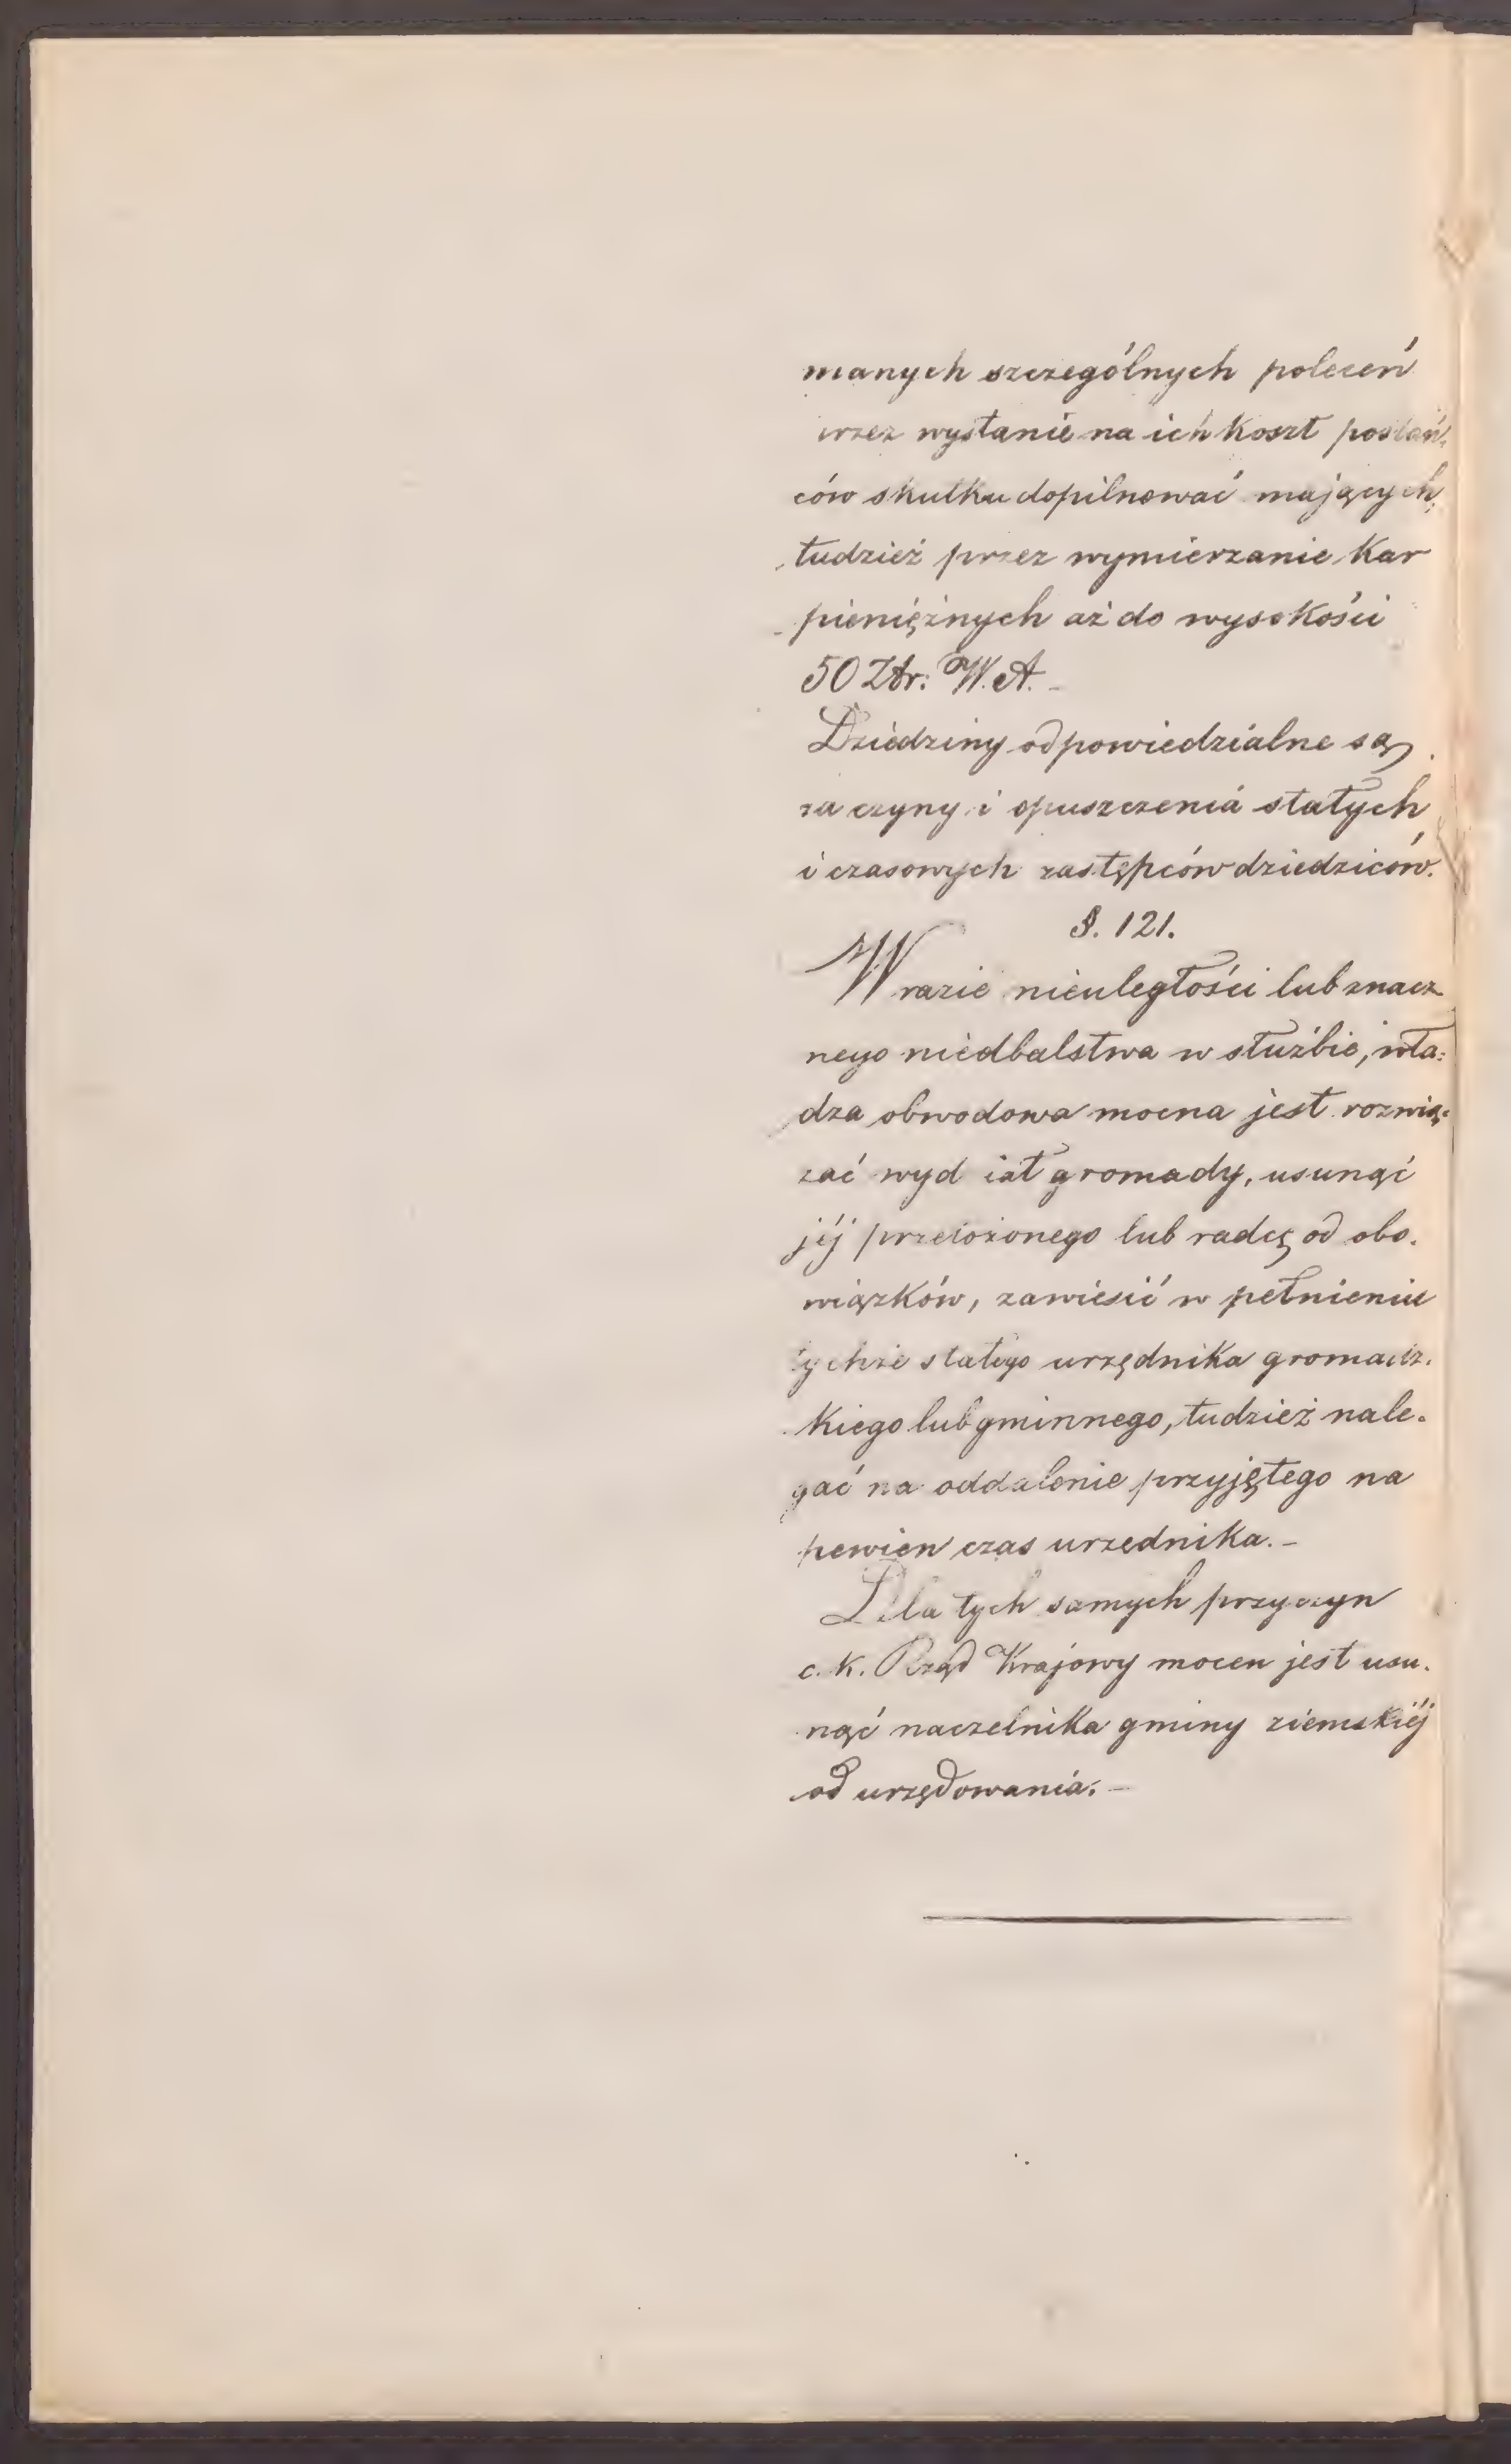 manych szczególnych poleceń
przez wysłanie na ich koszt posłań-
ców skutku dopilnować mających,
tudzież przez wymierzanie kar
pieniężnych aż do wysokości
50 Złr: W. A. -
Dziedziny odpowiedzialne są
za czyny i opuszczenia stałych
i czasowych zastępców dziedziców.
§. 121.
W razie nieuległości lub znacz
nego niedbalstwa w służbie, wła:
dza obwodowa mocna jest rozwią-
zać wydział gromady, usunąć
jéj przełożonego lub radcę od obo-
wiązków, zawiesić w pełnieniu
tychże stałego urzędnika gromadz-
kiego lub gminnego, tudzież nale-
gać na oddalenie przyjętego na
pewien czas urzędnika. -
Dla tych samych przyczyn
c. k. Rząd Krajowy mocen jest usu-
nąć naczelnika gminy ziemskiéj
od urzędowania. -